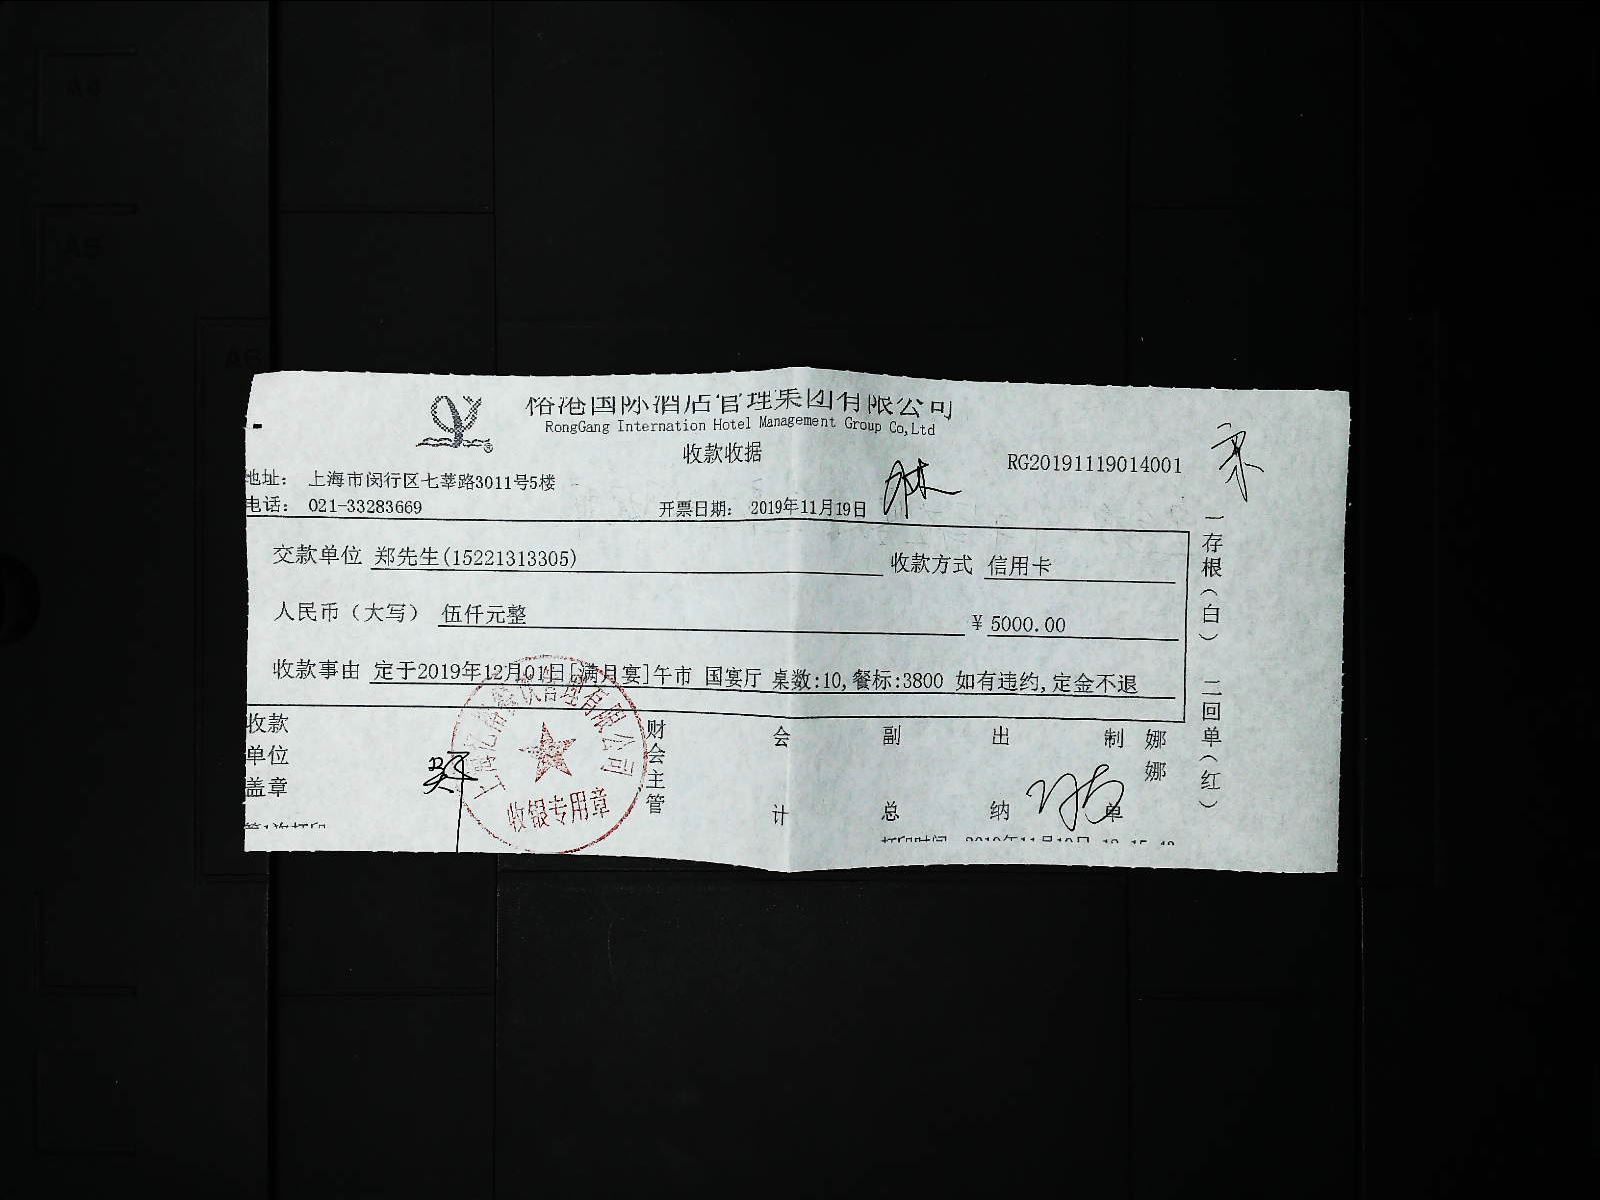 裕港国际酒店管理集团有限公司
RongGang Internation Hotel Management Group Co,Ltd
收款收据
RG20191119014001
地址： 上海市闵行区七莘路3011号5楼
电话： 021-33283669
开票日期： 2019年11月19日
交款单位 郑先生(15221313305) 收款方式 信用卡
人民币（大写） 伍仟元整 ￥5000.00
收款事由 定于2019年12月01日[满月宴]午市 国宴厅 桌数:10,餐标:3800 如有违约,定金不退
收款单位盖章
财会主管
会计
副总
出纳
制单
娜娜
一存根（白） 二回单（红）
餐饮管理有限公司
收银专用章
第1次打印
打印时间